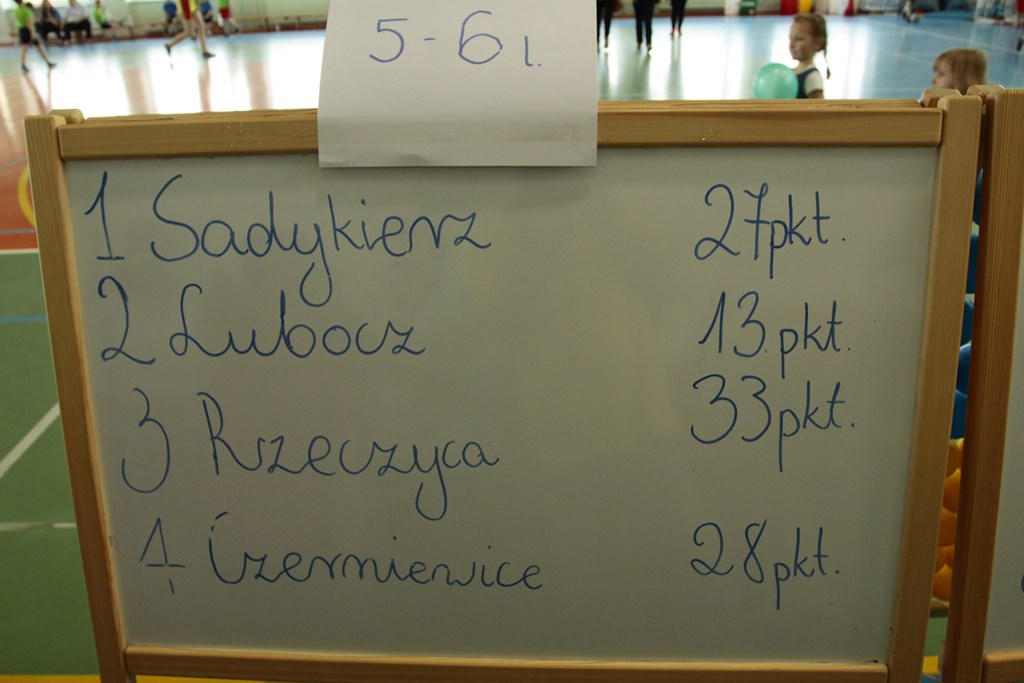 5-6 l.
1 Sadykierz 27pkt.
2 Lubocz 13 pkt.
3 Rzeczyca 33pkt.
4 Czerniewice 28pkt.